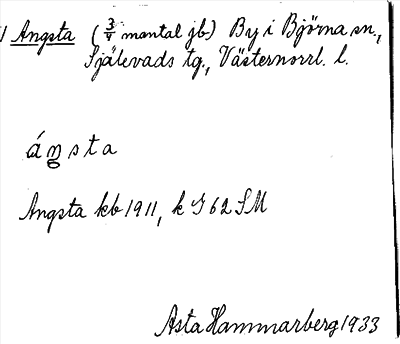 Angsta (3/4 mantal jb.) By i Björna sn.,
Själevads tg., Västernorrl. l.
áŋsta
Angsta kb 1911, k J 62 SM
Asta Hammarberg 1933